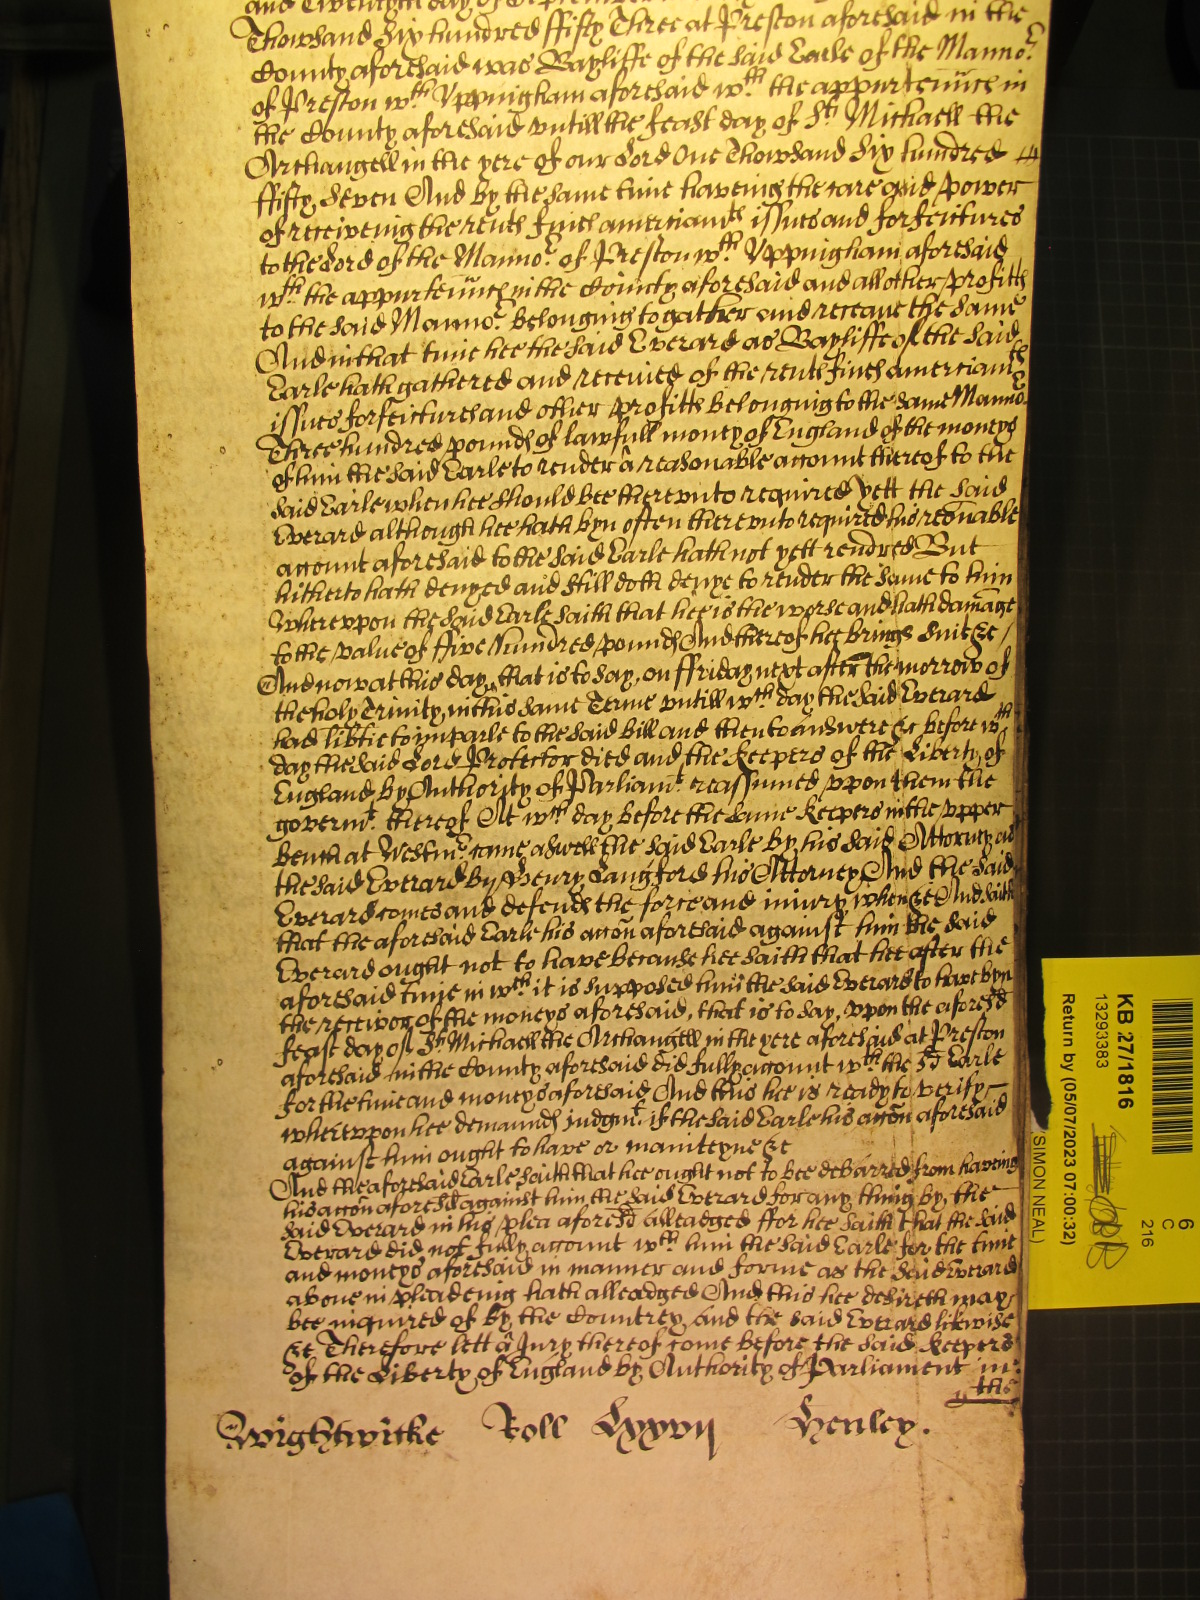 and Twentyeth day of September
Thowsand Six hundred ffifty Three at Preston aforesaid in the
County aforesaid was Bayliffe of the said Earle of the Manno.r
of Preston w.th Vppingham aforesaid w.th the appurtenncs in
the County aforesaid vntill the feast day of S.t Michaell the
Archangell in the yere of our Lord One Thowsand Six hundred
ffifty Seven And by the same time haveing the care and power
of receiveing the rents fines amerciam.ts issues and forfeitures
to the Lord of the Manno.r of Preston w.th Vppingham aforesaid
w.th the appurtenncs in the County aforesaid and all other profitts
to the said Manno.r belonging to gather and receaue the same
And in that time hee the said Everard as Bayliffe of the said
Earle hath gathered and received of the rents fines amerciam.ts
issues forfeitures and other profitts belonging to the same Manno.r
Three hundred pounds of lawfull money of England of the moneys
of him the said Earle to render a reasonable account thereof to the
said Earle when hee should bee therevnto required yett the said
Everard although hee hath byn often therevnto required his resonable
account aforesaid to the said Earle hath not yett rendred But
hitherto hath denyed and still doth denye to render the same to him
Wherevpon the said Earle saith that hee is the worse and hath damage
to the value of ffive hundred pounds And thereof hee brings suite &c
And now at this day that is to say, on ffriday next after the morrow of
the holy Trinity, in this same Terme vntill w.ch day the said Everard
had libtie to imparle to the said bill and then to answere &c before w.ch
day the said Lord Protector died and the Keepers of the Liberty of
England by Authority of Parliam.t reassumed vpon them the
governm.t thereof At w.ch day before the same Keepers in the vpper
bench at Westm.r came aswell the said Earle by his said Attorney as
the said Everard by Henry Langford his Attorney And the said
Everard comes and defends the force and iniury when &c And saith
that the aforesaid Earle his accon aforesaid against him the said
Everard ought not to have because hee saith that hee after the
aforesaid time in w.ch it is supposed him the said Everard to have byn
the receivor of the moneys aforesaid, that is to say, vpon the aforesd
feast day of S.t Michaell the Archangell in the yere aforesaid at Preston
aforesaid in the County aforesaid did fully account w.th the sd Earle
for the time and moneys aforesaid And this hee is ready to verify
wherevpon hee demaunds iudgm.t if the said Earle his accon aforesaid
against him ought to have or mainteyne &c
And the aforesaid Earle saith that hee ought not to bee debarred from haveing
his accon aforesd against him the said Everard for any thing by the
said Everard in his plea aforesd alleadged ffor hee saith that the said
Everard did not fully account w.th him the said Earle for the time
and moneys aforesaid in manner and forme as the said Everard
above in pleadeing hath alleadged And this hee desireth may
bee inquired of by the Countrey and the said Everard likewise
&c Therefore lett a Jury thereof come before the said Keepers
of the Liberty of England by Authority of Parliament in
the
Wightwicke Roll Lxxvij Henley.
KB 27/1816
13293383
Return by (05/07/2023 07:00:32)
(SIMON NEAL)
6
C
216